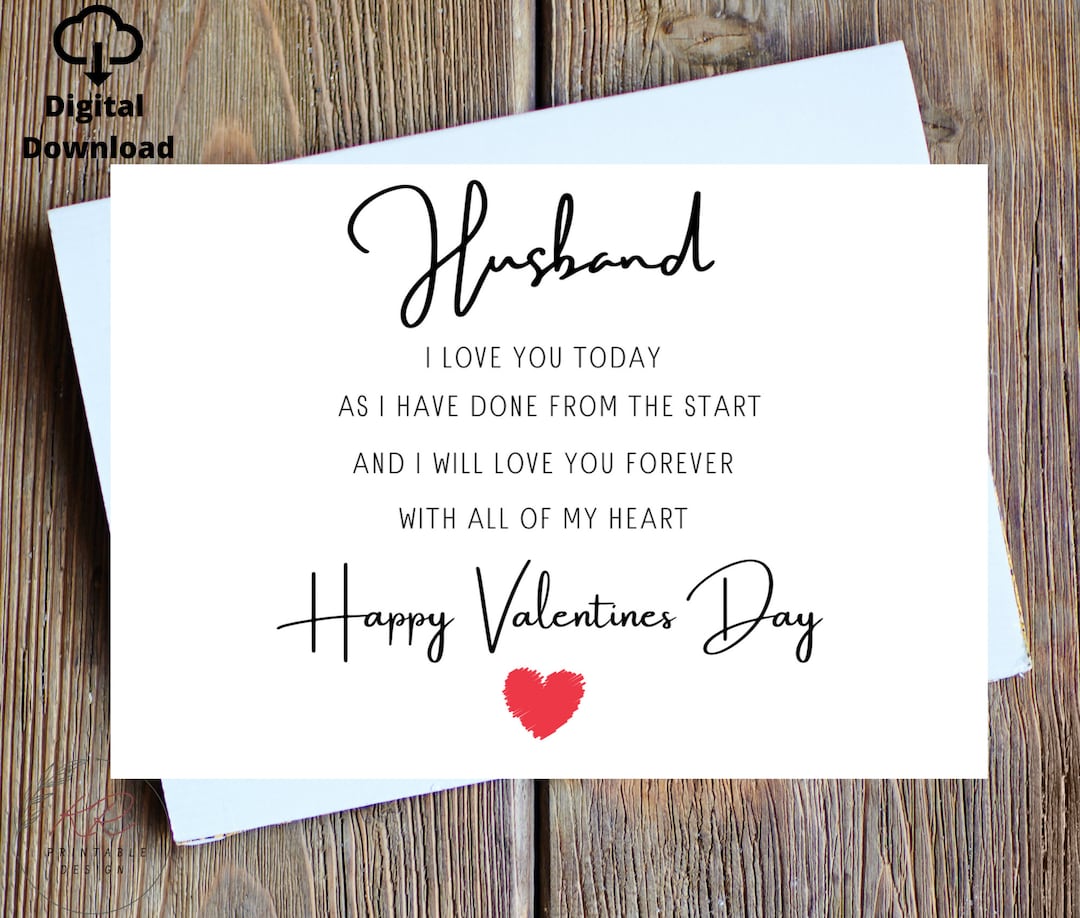 Digital
Download
Husband
I LOVE YOU TODAY
AS I HAVE DONE FROM THE START
AND I WILL LOVE YOU FOREVER
WITH ALL OF MY HEART
Happy Valentines Day
PRINTABLE
DESIGN